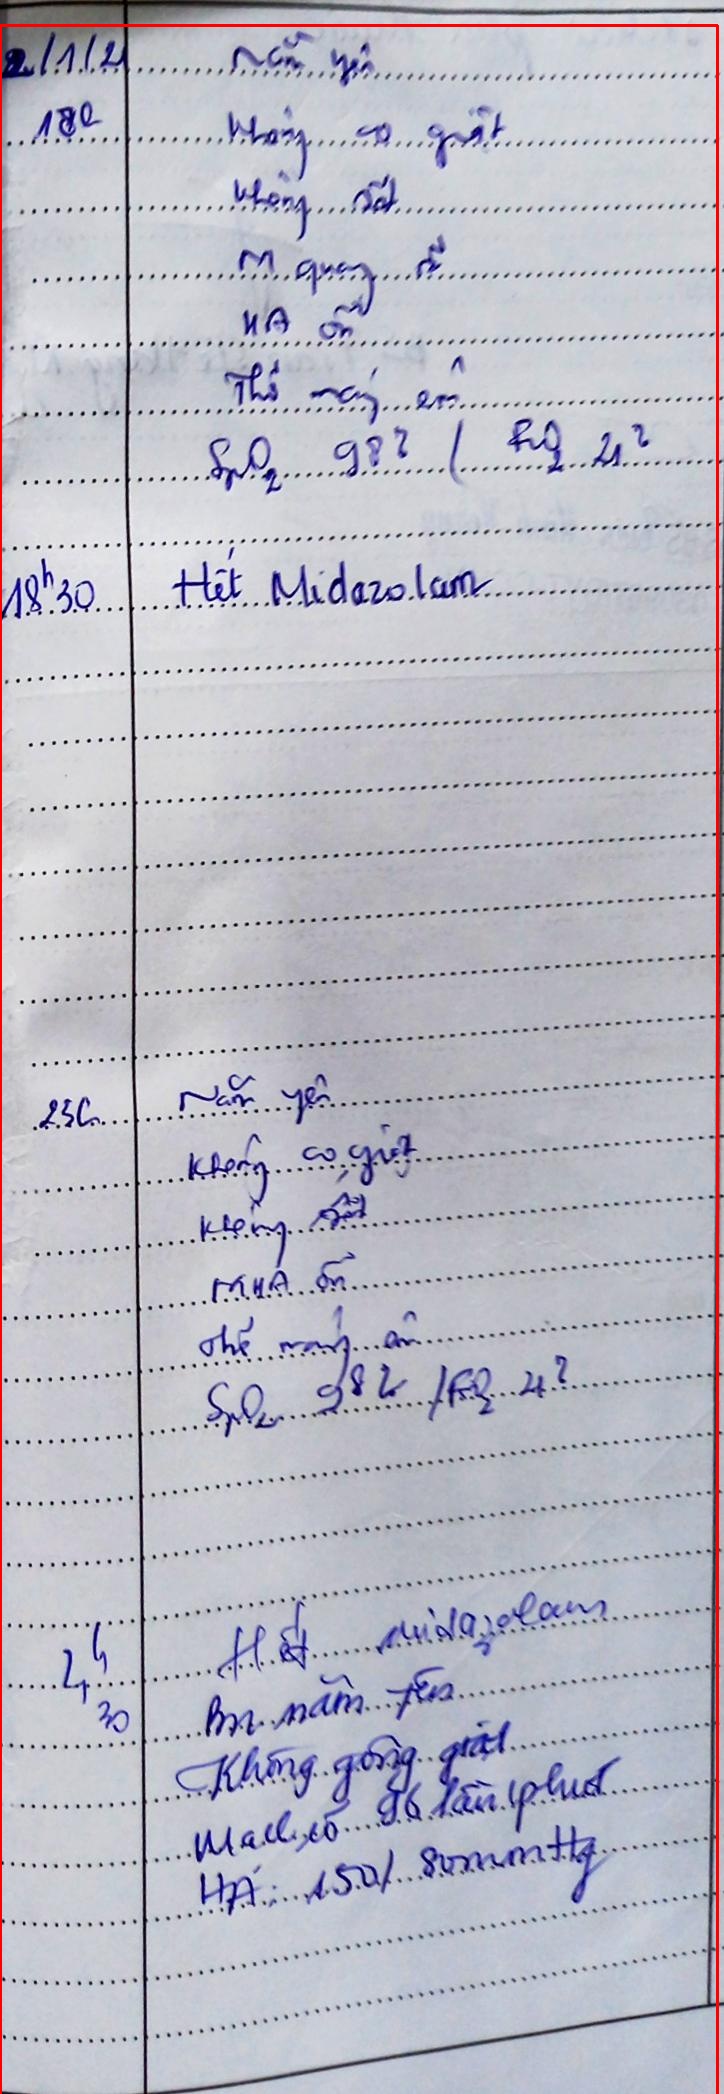 2/1/21 Nằm yên
18h Không co giật
Không sốt
M quay rõ
HA ổn
Thở máy êm
SpO2 98% / FiO2 41%
18h30 Hết Midazolam
23h Nằm yên
Không co giật
Không sốt
M HA ổn
thở máy êm
SpO2 98% / FiO2 41%
Hết midazolam
30 Bn nằm yên
Không gồng giật
Mạch cổ 96 lần/phút
HA: 150/80mmHg